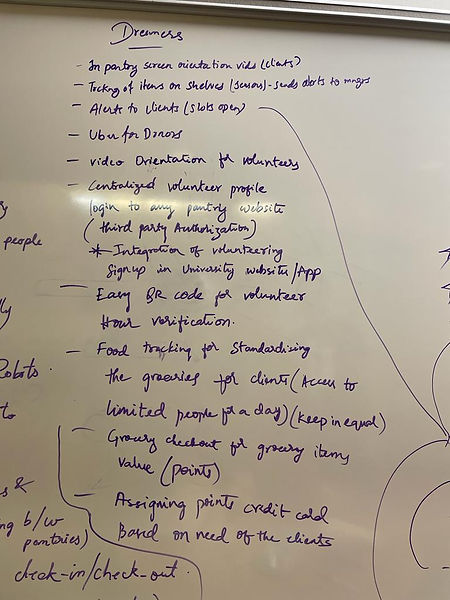 Dreamers
- In pantry screen orientation vids (clients)
- Tracking of items on shelves (sensors) - sends alerts to mngrs
- Alerts to clients (slots open)
- Uber for Donors
- video Orientation for volunteers
- Centralized volunteer profile
login to any pantry website
(third party Authorization)
* - Integration of volunteering
Signup in University website/App
- Easy QR code for volunteer
Hour verification.
- Food tracking for Standardizing
the groceries for clients (Access to
limited people for a day) (keep in equal)
- Grocery checkout for grocery items
value (points)
- Assigning points credit card
Based on need of the clients
people
Robots.
to
&
b/w
pantries)
check-in/check-out.